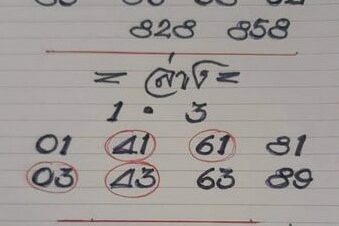 828 858
= ล่าง =
1 • 3
01 41 61 81
03 43 63 89